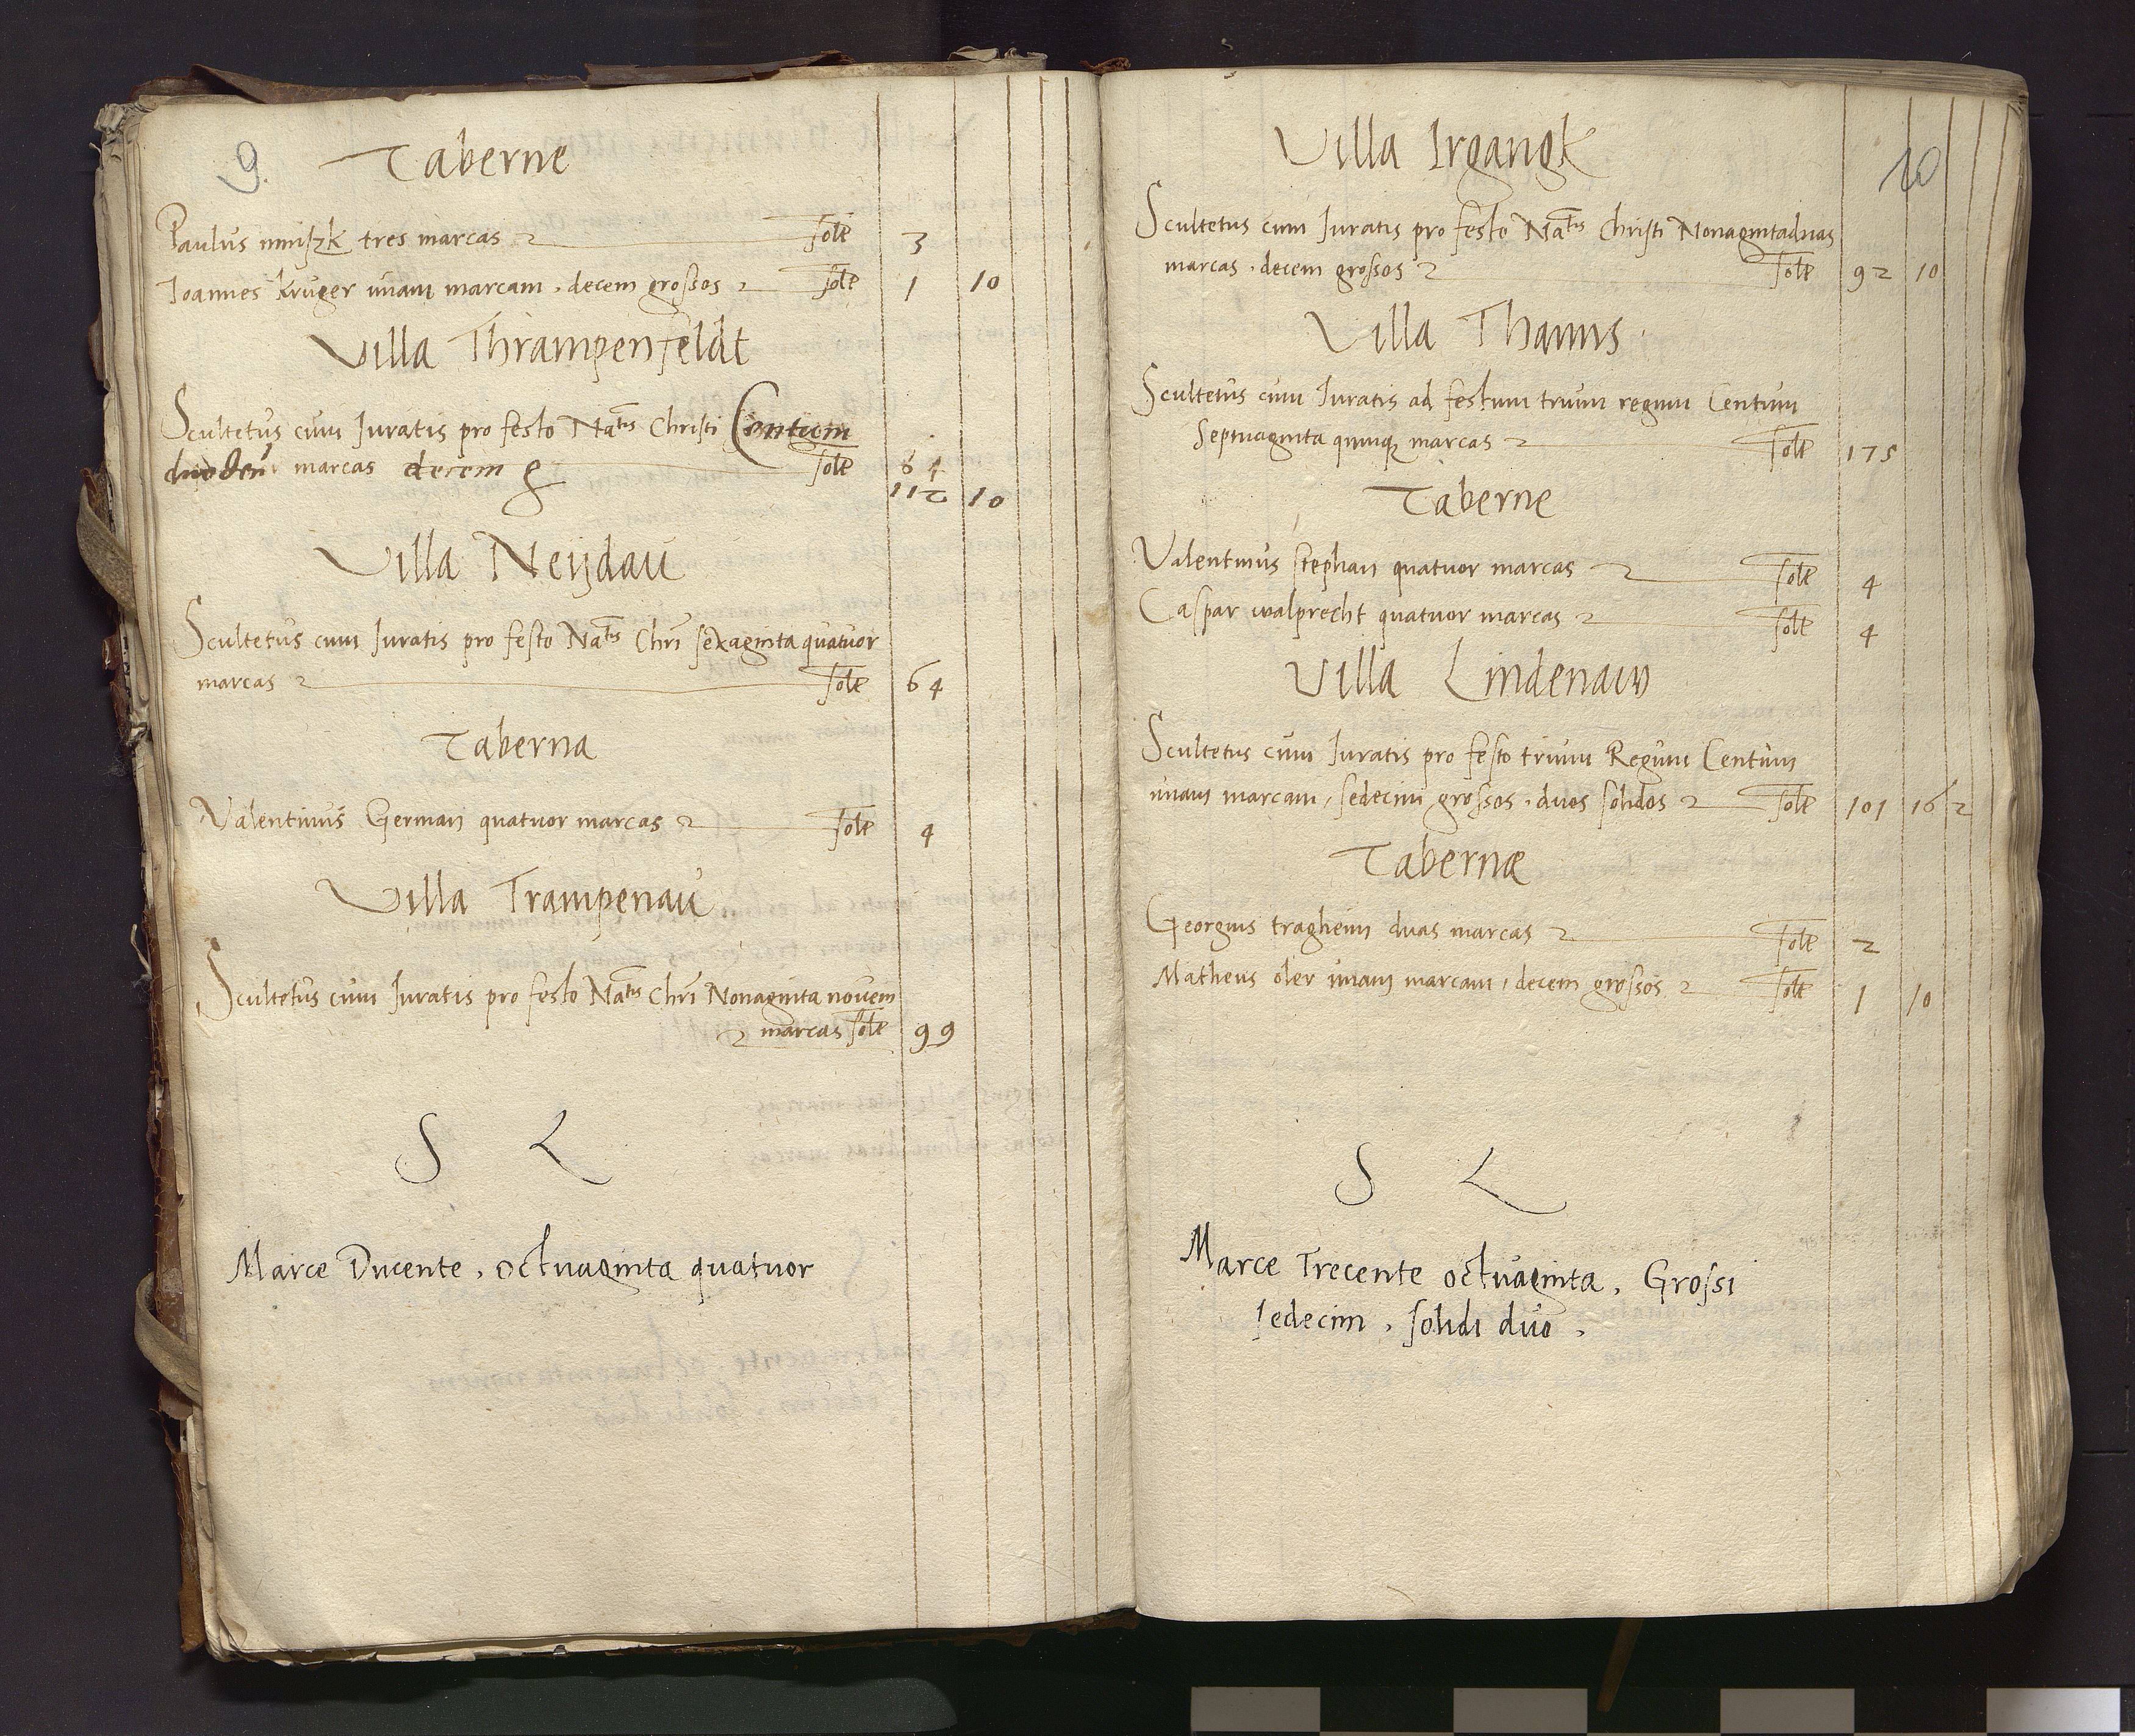 9.
Taberne
Paulus tres marcas Solt 3
Joannes Krüger unam marcam, decem grossos Solt 1 10
Villa Thrampenfeldt
Scultetus cum Juratis pro festo Natis Christi Centum
duodeci marcas decem g Solt 64
112 10
Villa Neijdau
Scultetus cum Juratis pro festo Natis Chri sexaginta quatuor
marcas Solt 64
Taberna
Valentinus German quatuor marcas Solt 4
Villa Trampenau
Scultetus cum Juratis pro festo Natis Chri Nonaginta novem
marcas Solt 99
S L
Marce Ducente, octuaginta quatuor
10
Villa Irgangk
Scultetus cum Juratis pro festo Natis Christi Nonagintaduas
marcas, decem grossos Solt 92 10
Villa Thams
Scultetus cum Juratis ad festum trium regum Centum
Septuaginta quinq marcas Solt 175
Taberne
Valentinus Stephan quatuor marcas Solt 4
Caspar walprecht quatuor marcas Solt 4
Villa Lindenaw
Scultetus cum Juratis pro festo trium Regum Centum
unam marcam, sedecim grossos, duos solidos Solt 101 16 2
Tabernæ
Georgius tragheim duas marcas Solt 2
Matheus oler unam marcam, decem grossos Solt 1 10
S L
Marce Trecente octuaginta, Grossi
sedecim, solidi duo,